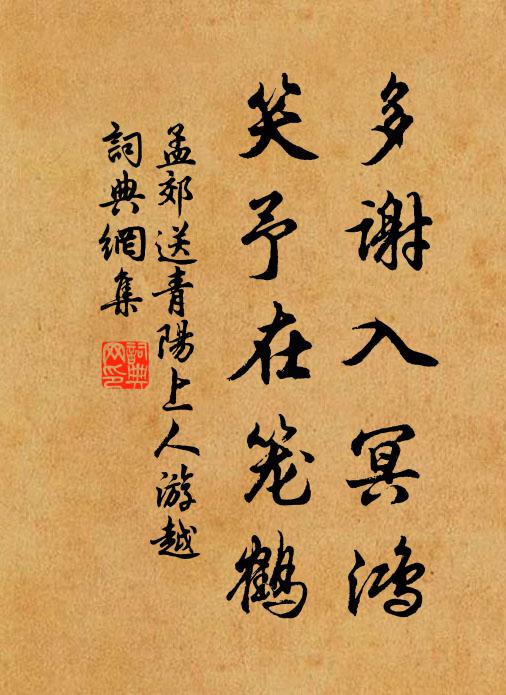 多谢入冥鸿
笑予在笼鹤
孟郊送青陽上人游越
詞典網集
詞典网印